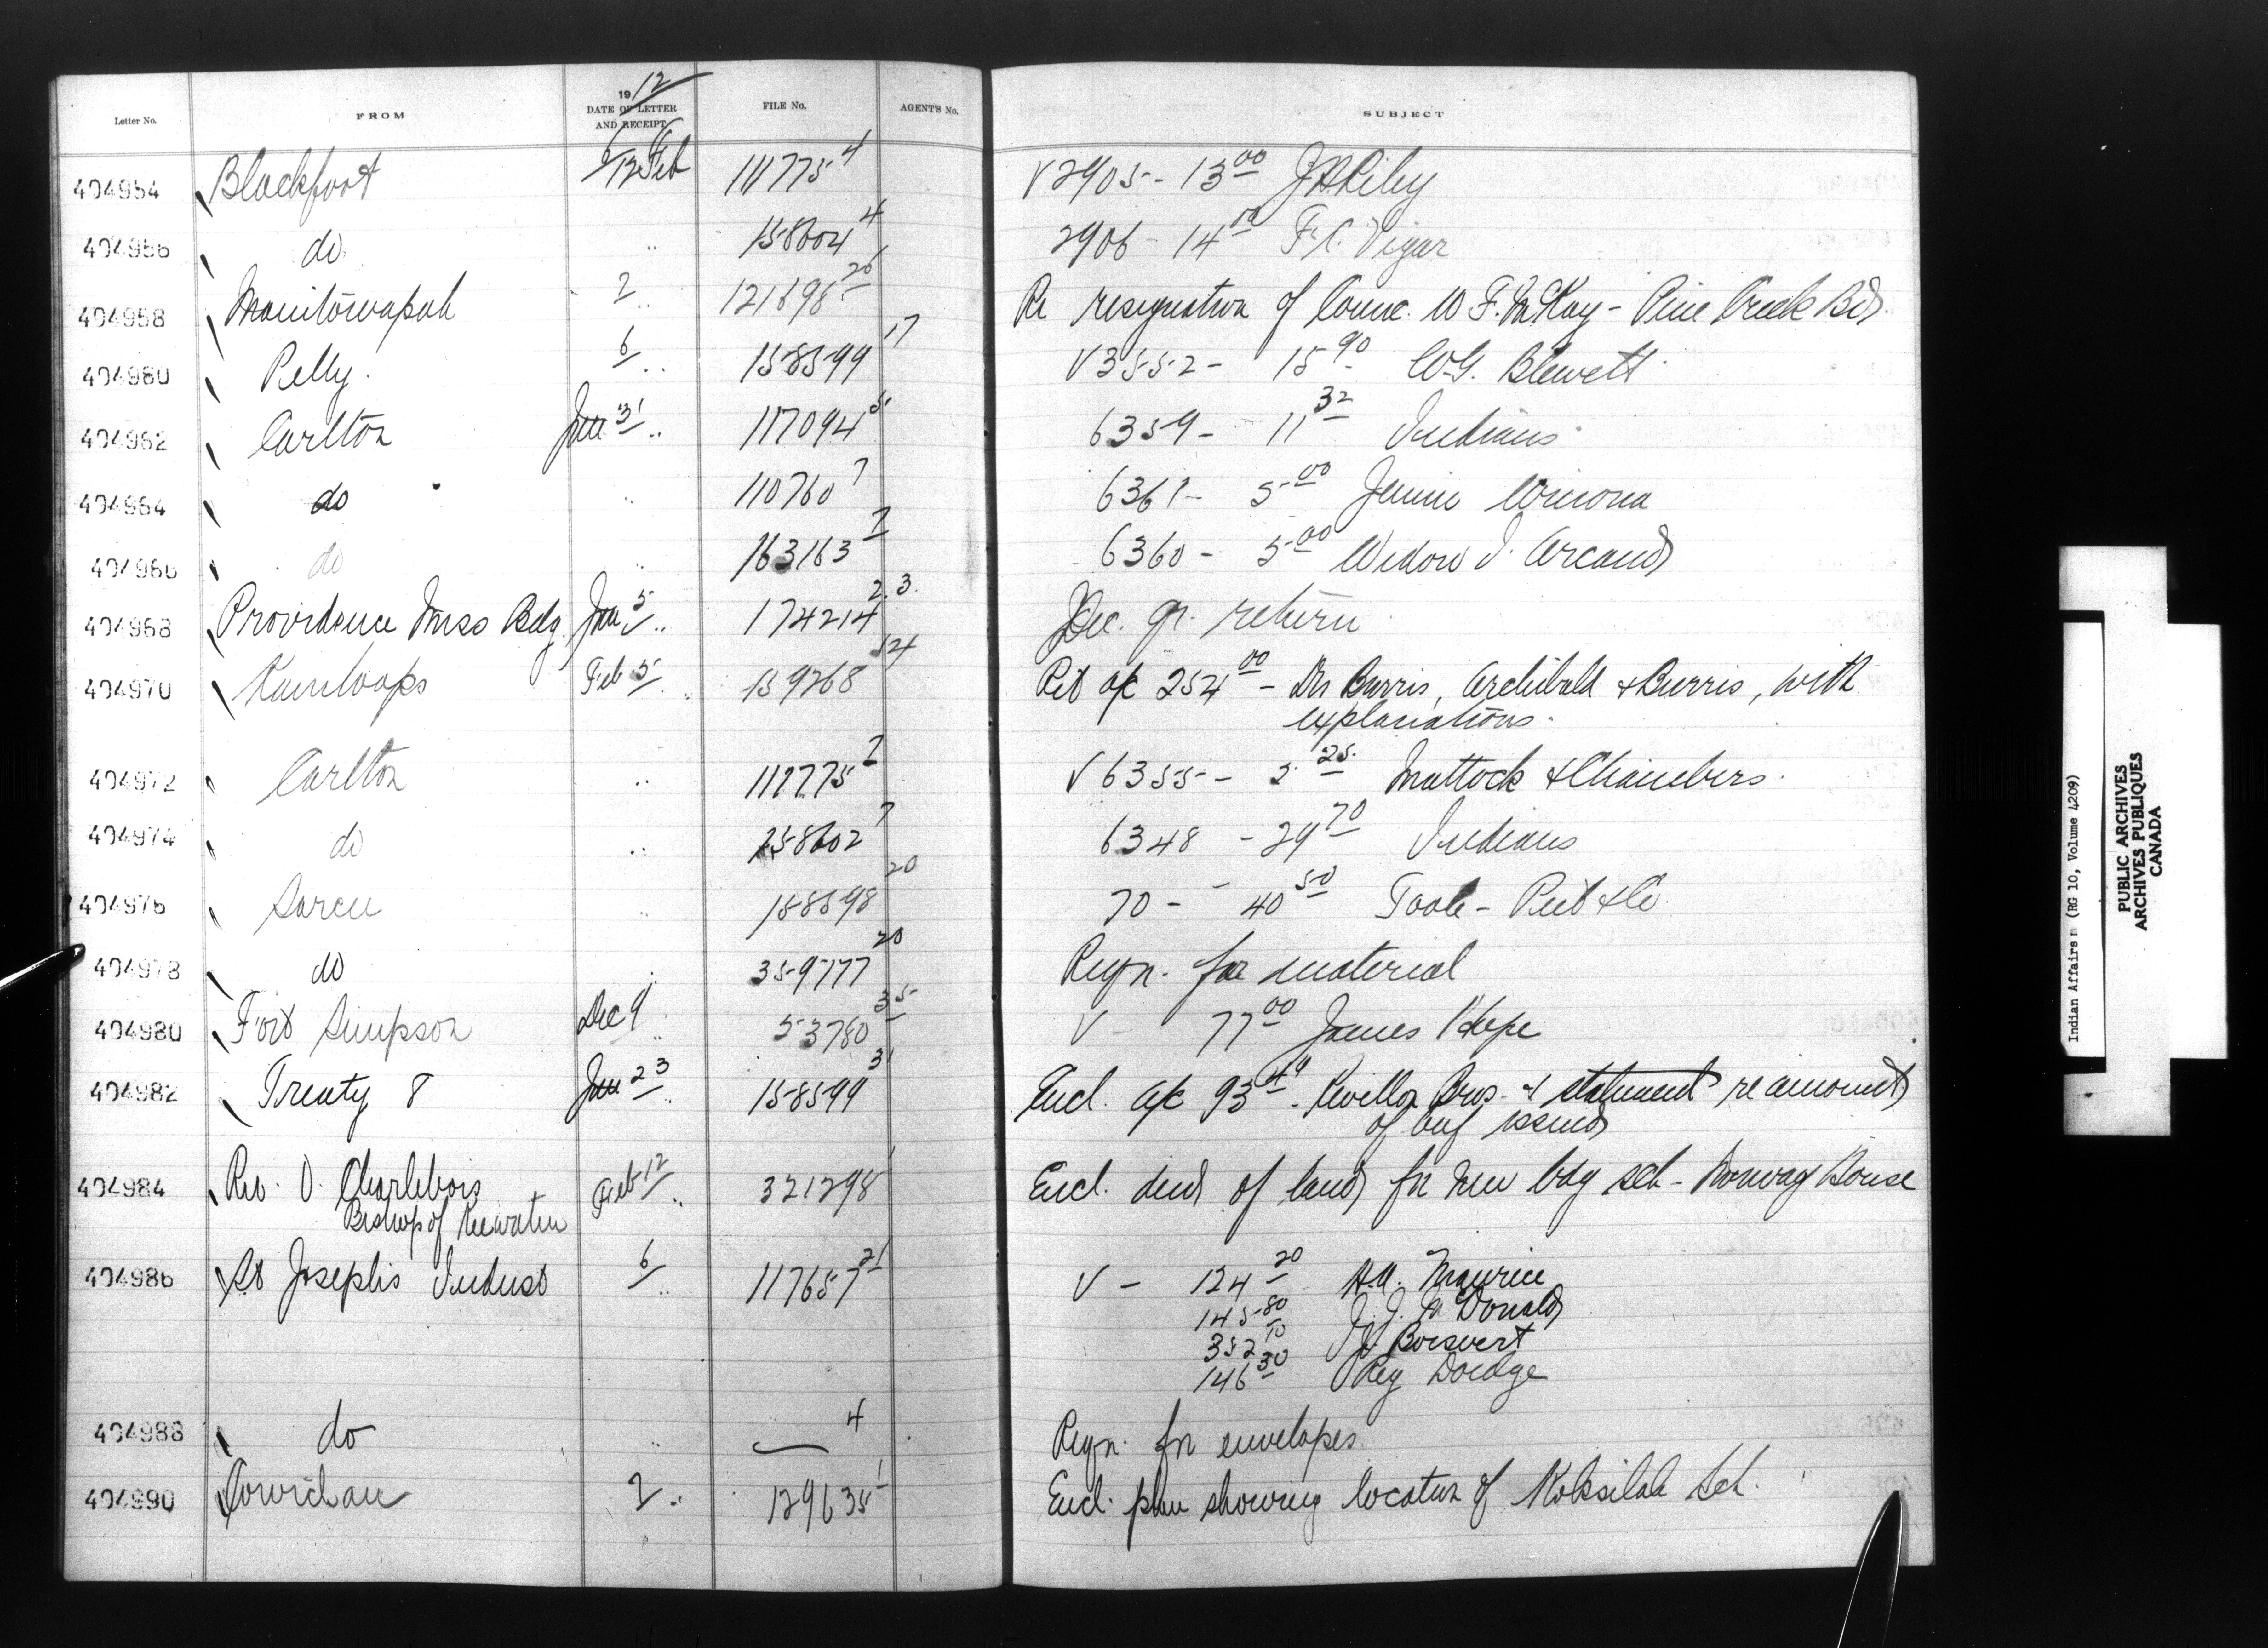 Letter No. FROM 1912 DATE OF LETTER AND RECEIPT FILE No. AGENT'S No. SUBJECT
404954 Blackfoot 6/12 Feb 111775 4 V 2905 - 13 00 J H Riley
404956 do " 158604 4 2906 - 14 00 F. C. Vigar
404958 Manitowapah 2 " 121698 26 Re resignation of Counc. W F. McKay - Pine Creek Bd.
404960 Pelly 6 " 158599 17 V 3552 - 15 90 W.G. Blewett
404962 Carlton Jan 31 " 117094 5 6359 - 11 32 Indians
404964 do " 110760 7 6361 - 5 00 Jennie Winona
404966 do " 163163 7 6360 - 5 00 Widow J. Arcand
404968 Providence Miss Bdg. Jan 5 " 174214 2.3. Dec. qr. return
404970 Kamloops Feb 5 " 159268 54 Ret a/c 254 00 - Drs Burris, Archibald & Burris, with
explanations.
404972 Carlton " 117775 7 V 6355 - 5 25 Mattock & Chambers.
404974 do " 158602 7 6348 - 29 70 Indians
404976 Sarcee " 158598 20 70 - 40 50 Toole - Peet & Co.
404978 do " 359777 20 Reqn. for material
404980 Fort Simpson Dec 9 " 53780 35 V - 77 00 James Hope
404982 Treaty 8 Jan 23 158599 31 Encl. a/c 93 49 - Revillon Bros. & statement re amount
of issued
404984 Rev. O. Charlebois Feb 12 " 321298 1 Encl. deed of land for new bdg sch - Norway House
Bishop of Keewatin
404986 St Josephs Indust 6 " 117657 21 V - 124 20 A.U. Maurice
145 80 J. J. McDonald
352 10 J Boisvert
146 30 Reg Doidge
404988 do " 4 Reqn. for envelopes.
404990 Cowichan 2 " 129635 1 Encl. plan showing location of Koksilah Sch.
Indian Affairs (RG 10, Volume 4209)
PUBLIC ARCHIVES
ARCHIVES PUBLIQUES
CANADA